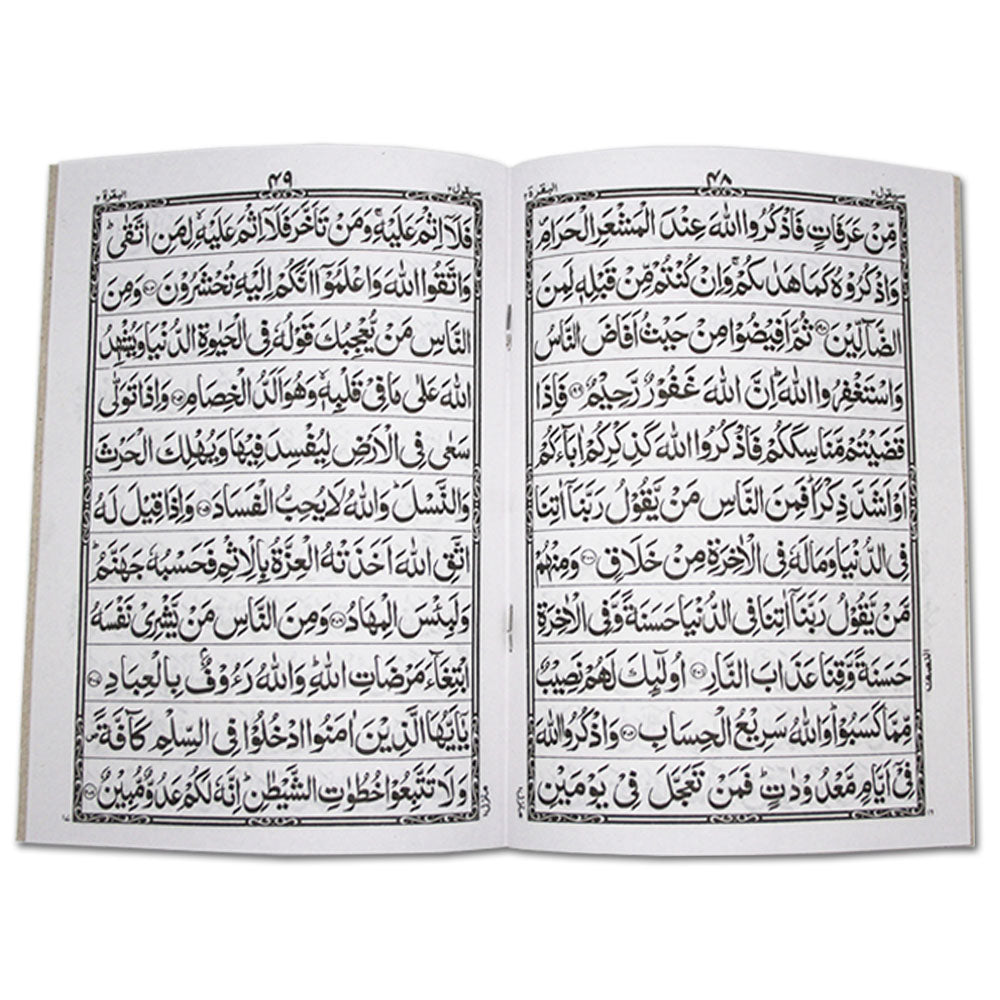 سیقول ٢
٤٨
البقرة ٢
مِّنْ عَرَفَاتٍ فَاذْكُرُوا اللّٰهَ عِنْدَ الْمَشْعَرِ الْحَرَامِ
وَاذْكُرُوْهُ كَمَا هَدٰىكُمْ ۚ وَاِنْ كُنْتُمْ مِّنْ قَبْلِهٖ لَمِنَ
الضَّآلِّيْنَ ﴿١٩٨﴾ ثُمَّ اَفِيْضُوْا مِنْ حَيْثُ اَفَاضَ النَّاسُ
وَاسْتَغْفِرُوا اللّٰهَ ؕ اِنَّ اللّٰهَ غَفُوْرٌ رَّحِيْمٌ ﴿١٩٩﴾ فَاِذَا
قَضَيْتُمْ مَّنَاسِكَكُمْ فَاذْكُرُوا اللّٰهَ كَذِكْرِكُمْ اٰبَآءَكُمْ
اَوْ اَشَدَّ ذِكْرًا ؕ فَمِنَ النَّاسِ مَنْ يَّقُوْلُ رَبَّنَآ اٰتِنَا
فِى الدُّنْيَا وَمَا لَهٗ فِى الْاٰخِرَةِ مِنْ خَلَاقٍ ﴿٢٠٠﴾ وَمِنْهُمْ
مَّنْ يَّقُوْلُ رَبَّنَآ اٰتِنَا فِى الدُّنْيَا حَسَنَةً وَّفِى الْاٰخِرَةِ
حَسَنَةً وَّقِنَا عَذَابَ النَّارِ ﴿٢٠١﴾ اُولٰٓئِكَ لَهُمْ نَصِيْبٌ
مِّمَّا كَسَبُوْا ؕ وَاللّٰهُ سَرِيْعُ الْحِسَابِ ﴿٢٠٢﴾ وَاذْكُرُوا اللّٰهَ
فِىْٓ اَيَّامٍ مَّعْدُوْدٰتٍ ؕ فَمَنْ تَعَجَّلَ فِىْ يَوْمَيْنِ
النصف
سیقول ٢
٤٩
البقرة ٢
فَلَآ اِثْمَ عَلَيْهِ ۚ وَمَنْ تَاَخَّرَ فَلَآ اِثْمَ عَلَيْهِ ۙ لِمَنِ اتَّقٰى ؕ
وَاتَّقُوا اللّٰهَ وَاعْلَمُوْٓا اَنَّكُمْ اِلَيْهِ تُحْشَرُوْنَ ﴿٢٠٣﴾ وَمِنَ
النَّاسِ مَنْ يُّعْجِبُكَ قَوْلُهٗ فِى الْحَيٰوةِ الدُّنْيَا وَيُشْهِدُ
اللّٰهَ عَلٰى مَا فِىْ قَلْبِهٖ ۙ وَهُوَ اَلَدُّ الْخِصَامِ ﴿٢٠٤﴾ وَاِذَا تَوَلّٰى
سَعٰى فِى الْاَرْضِ لِيُفْسِدَ فِيْهَا وَيُهْلِكَ الْحَرْثَ
وَالنَّسْلَ ؕ وَاللّٰهُ لَا يُحِبُّ الْفَسَادَ ﴿٢٠٥﴾ وَاِذَا قِيْلَ لَهُ
اتَّقِ اللّٰهَ اَخَذَتْهُ الْعِزَّةُ بِالْاِثْمِ فَحَسْبُهٗ جَهَنَّمُ ؕ
وَلَبِئْسَ الْمِهَادُ ﴿٢٠٦﴾ وَمِنَ النَّاسِ مَنْ يَّشْرِىْ نَفْسَهُ
ابْتِغَآءَ مَرْضَاتِ اللّٰهِ ؕ وَاللّٰهُ رَءُوْفٌۢ بِالْعِبَادِ ﴿٢٠٧﴾
يٰٓاَيُّهَا الَّذِيْنَ اٰمَنُوا ادْخُلُوْا فِى السِّلْمِ كَآفَّةً ۪
وَلَا تَتَّبِعُوْا خُطُوٰتِ الشَّيْطٰنِ ؕ اِنَّهٗ لَكُمْ عَدُوٌّ مُّبِيْنٌ ﴿٢٠٨﴾